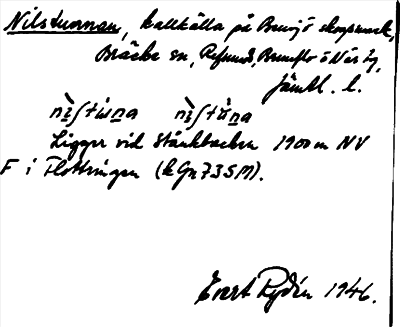 Nilstunnan, kallkälla på Bensjö skogsmark,
Bräcke sn, Refsunds, Brunflo o Näs tg,
Jämtl. l.
Ligger vid Stånkbacken 1900 m NV
F i Flottringen (kGn735M).
Evert Rydén 1946.